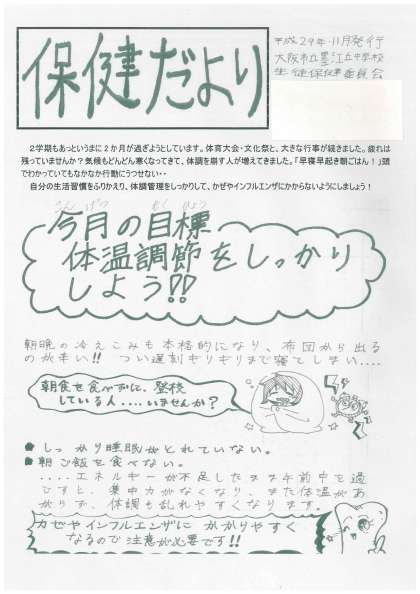 保健だより
平成29年.11月発行
大阪市立墨江丘中学校
生徒保健委員会
2学期もあっというまに2か月が過ぎようとしています。体育大会・文化祭と、大きな行事が続きました。疲れは
残っていませんか？気候もどんどん寒くなってきて、体調を崩す人が増えてきました。「早寝早起き朝ごはん！」頭
でわかっていてもなかなか行動にうつせない・・
自分の生活習慣をふりかえり、体調管理をしっかりして、かぜやインフルエンザにかからないようにしましょう！
こんげつ もくひょう
今月の目標
体温調節をしっかり
しよう!!
朝晩の冷えこみも本格的になり、布団から出る
のが辛い!! つい遅刻ギリギリまで寝てしまい....
朝食を食べずに、登校
している人....いませんか？
●しっかり睡眠がとれていない。
●朝ご飯を食べない。
....エネルギーが不足したまま午前中を過
ごすと、集中力がなくなり、また体温があ
がらず、体調も乱れやすくなります。
カゼやインフルエンザに かかりやすく
なるので 注意が必要です!!